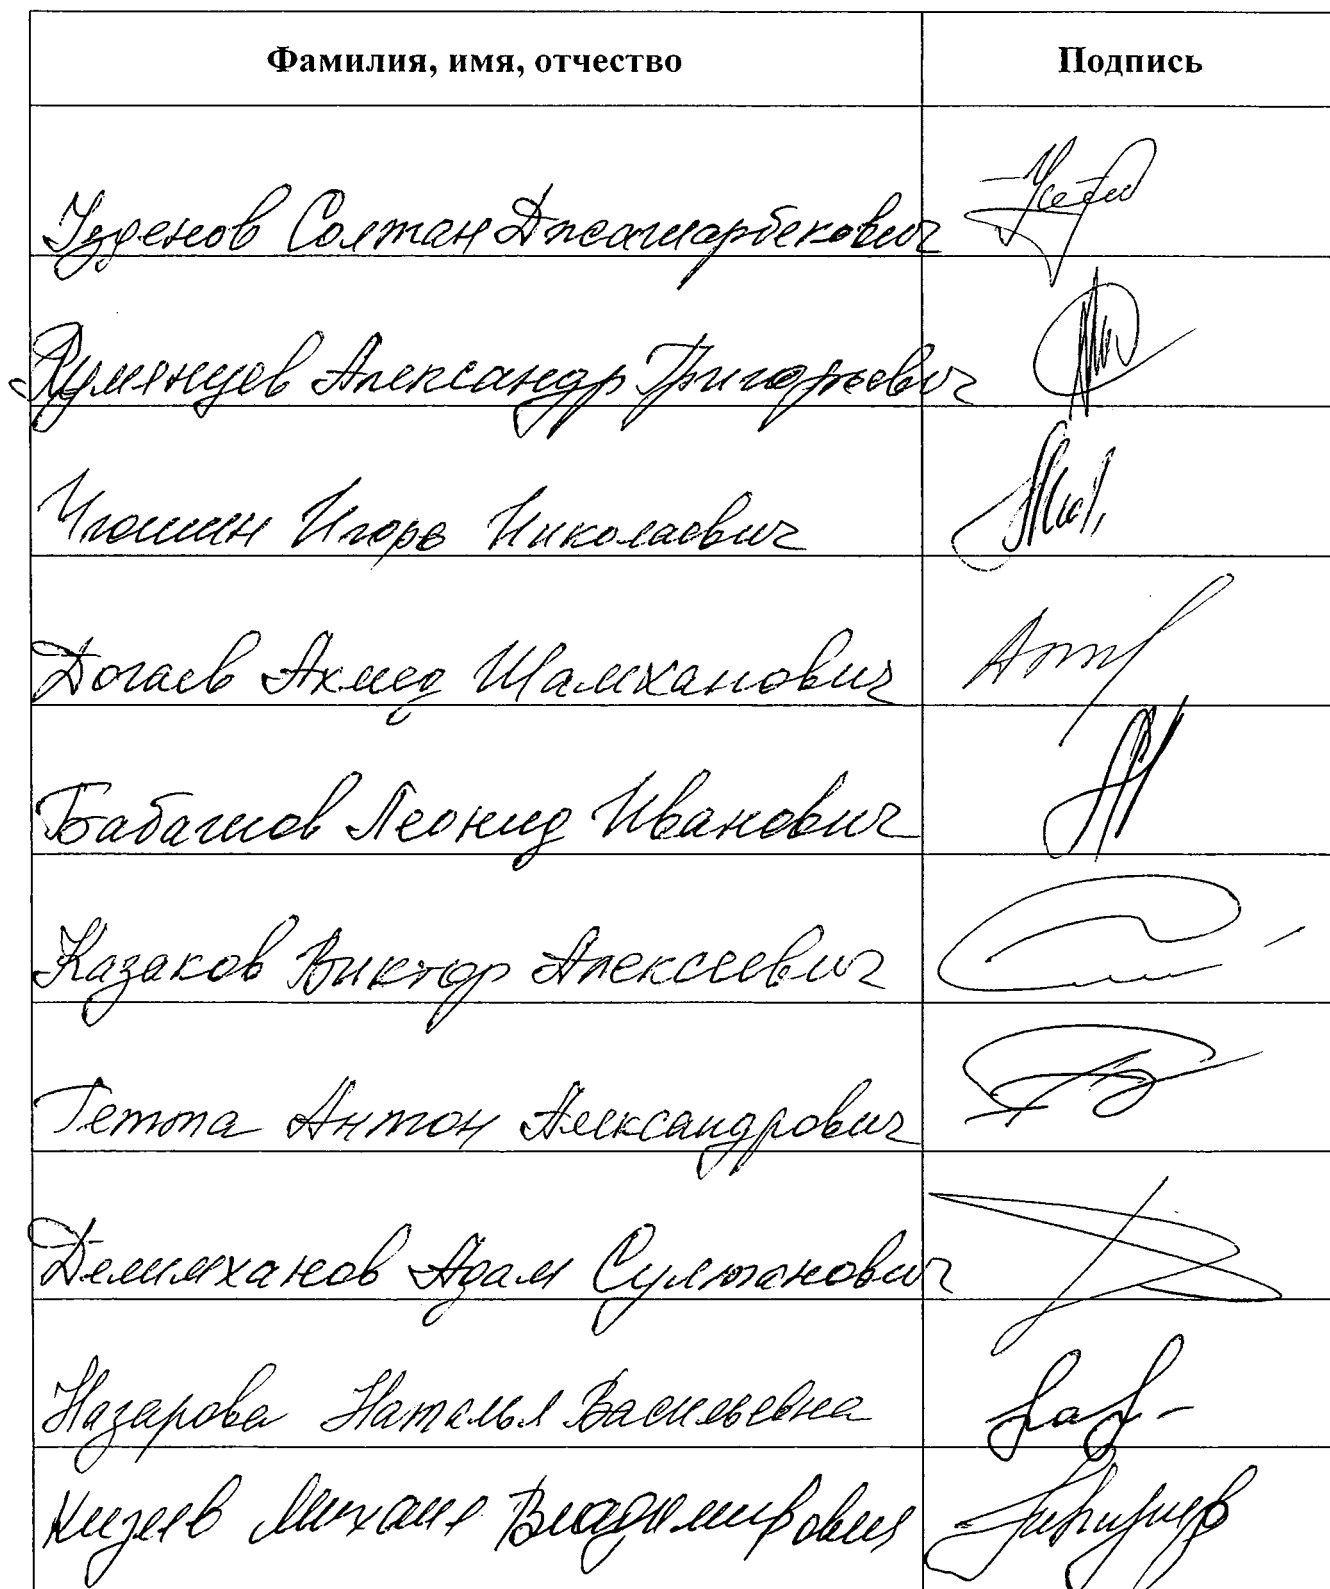 Фамилия, имя, отчество Подпись
Узденов Солтан Джамарбекович
Румянцев Александр Григорьевич
Игошин Игорь Николаевич
Догаев Ахмед Шамханович
Бабашов Леонид Иванович
Казаков Виктор Алексеевич
Гетта Антон Александрович
Делимханов Адам Султанович
Назарова Наталья Васильевна
Кизеев Михаил Владимирович